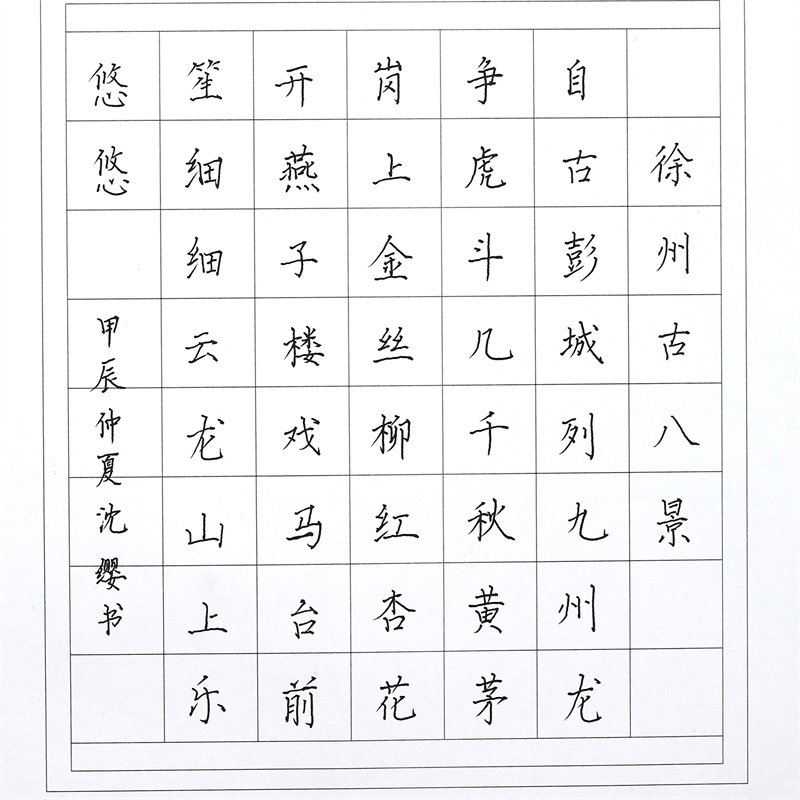 徐州古八景
自古彭城列九州龙
争虎斗几千秋黄茅
岗上金丝柳红杏花
开燕子楼戏马台前
笙细细云龙山上乐
悠悠
甲辰仲夏沈缨书